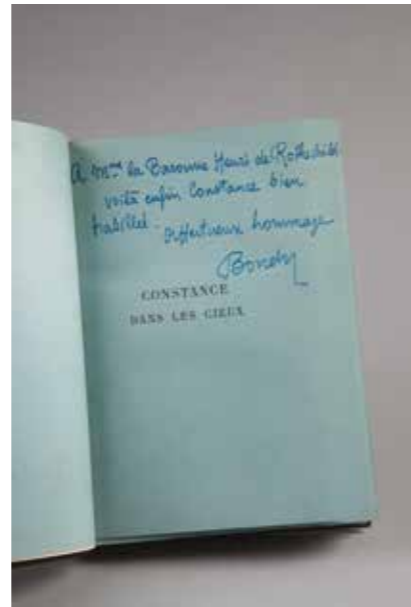 A Mme la Baronne Henri de Rothschild
voilà enfin Constance bien
habillée - Affectueux hommage
CONSTANCE
DANS LES CIEUX